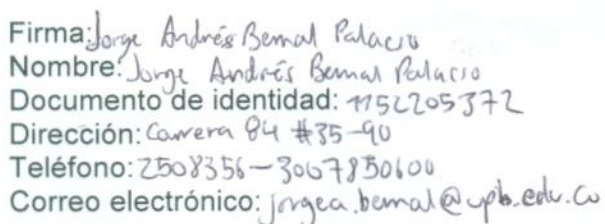 Firma: Jorge Andrés Bernal Palacio
Nombre: Jorge Andrés Bernal Palacio
Documento de identidad: 1152205372
Dirección: Carrera 84 #35-90
Teléfono: 2508356-3007850600
Correo electrónico: jorgea.bernal@upb.edu.co